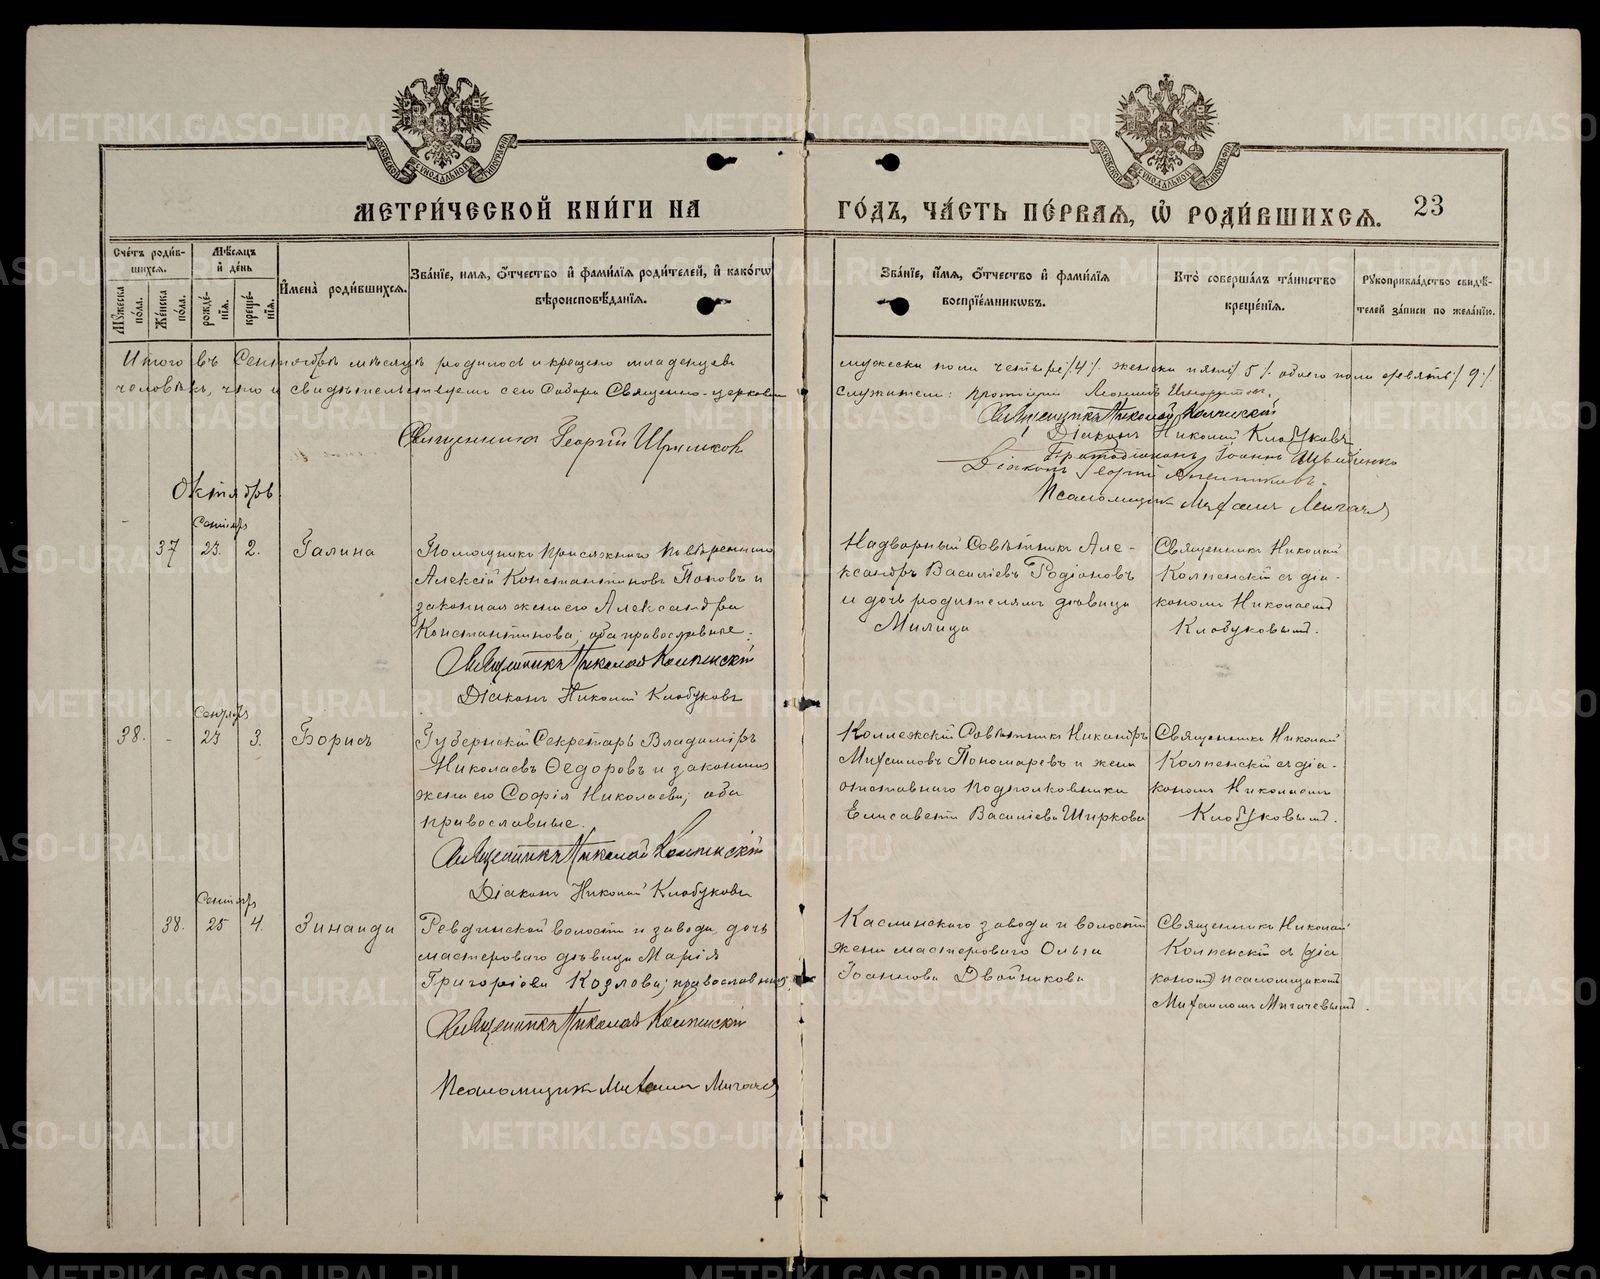 МЕТРИ́ЧЕСКОЙ КНИ́ГИ НА
ГО́ДЪ, ЧА́СТЬ ПЕ́РВАЯ, Ѽ РОДИ́ВШИХСЯ.
23
Сче́тъ роди́вшихся.
Мѣ́сяцъ и де́нь
Му́жеска по́ла.
Же́нска по́ла.
рожде́нїя.
креще́нїя.
И́мена̀ роди́вшихся.
Зва́нїе, и́мя, о́тчество и фами́лїя роди́телей, и како́гѡ
вѣроисповѣ́данїя.
Зва́нїе, и́мя, о́тчество и фами́лїя
воспрїе́мникѡвъ.
Кто̀ соверша́лъ та́инство
креще́нїя.
Рꙋкоприкла́дство свидѣ́-
телей за́писи по жела́нїю.
Итого въ Сентябрѣ мѣсяцѣ родилось и крещено младенцевъ
мужеска пола четыре /4/. женска пять / 5 /. обоего пола девять / 9 /.
человѣкъ, что и свидѣтельствуемъ сего Собора Священно-церковно
служители: протоіерей
Священникъ Георгій
Священникъ Николай Колпенскій
Діаконъ Николай Клобуковъ
Протодіаконъ Іоаннъ
Діаконъ Георгій
Псаломщикъ Михаилъ Мигачев
Октябрь
Сентябр
37
23.
2.
Галина
Помощникъ Присяжнаго повѣреннаго
Алексій Константиновъ Поповъ и
законная жена его Александра
Константинова; оба православные.
Священникъ Николай Колпенскій
Діаконъ Николай Клобуковъ
Надворный Совѣтникъ Але-
ксандръ Василіевъ Родіоновъ
и дочь родителямъ дѣвица
Милица
Священникъ Николай
Колпенскій съ діа-
кономъ Николаемъ
Клобуковымъ.
Сентябр
38.
-
23
3.
Борисъ
Губернскій Секретарь Владиміръ
Николаевъ Ѳедоровъ и законная
жена его Софія Николаева; оба
православные.
Священникъ Николай Колпенскій
Діаконъ Николай Клобуковъ
Коллежскій Совѣтникъ Никандръ
Михаиловъ Пономаревъ и жена
отставнаго подполковника
Елисавета Василіева Ширкова
Священникъ Николай
Колпенскій съ діа-
кономъ Николаемъ
Клобуковымъ.
Сентябр
38.
25
4.
Зинаида
Ревдинской волости и завода, дочь
мастероваго дѣвица Марія
Григоріева Козлова; православная.
Священникъ Николай Колпенскій
Псаломщикъ Михаилъ Мигачев
Каслинскаго завода и волости
жена мастероваго Ольга
Іоаннова Двойникова
Священникъ Николай
Колпенскій съ діа
кономъ псаломщикомъ
Михаиломъ Мигачевымъ.
METRIKI.GASO-URAL.RU